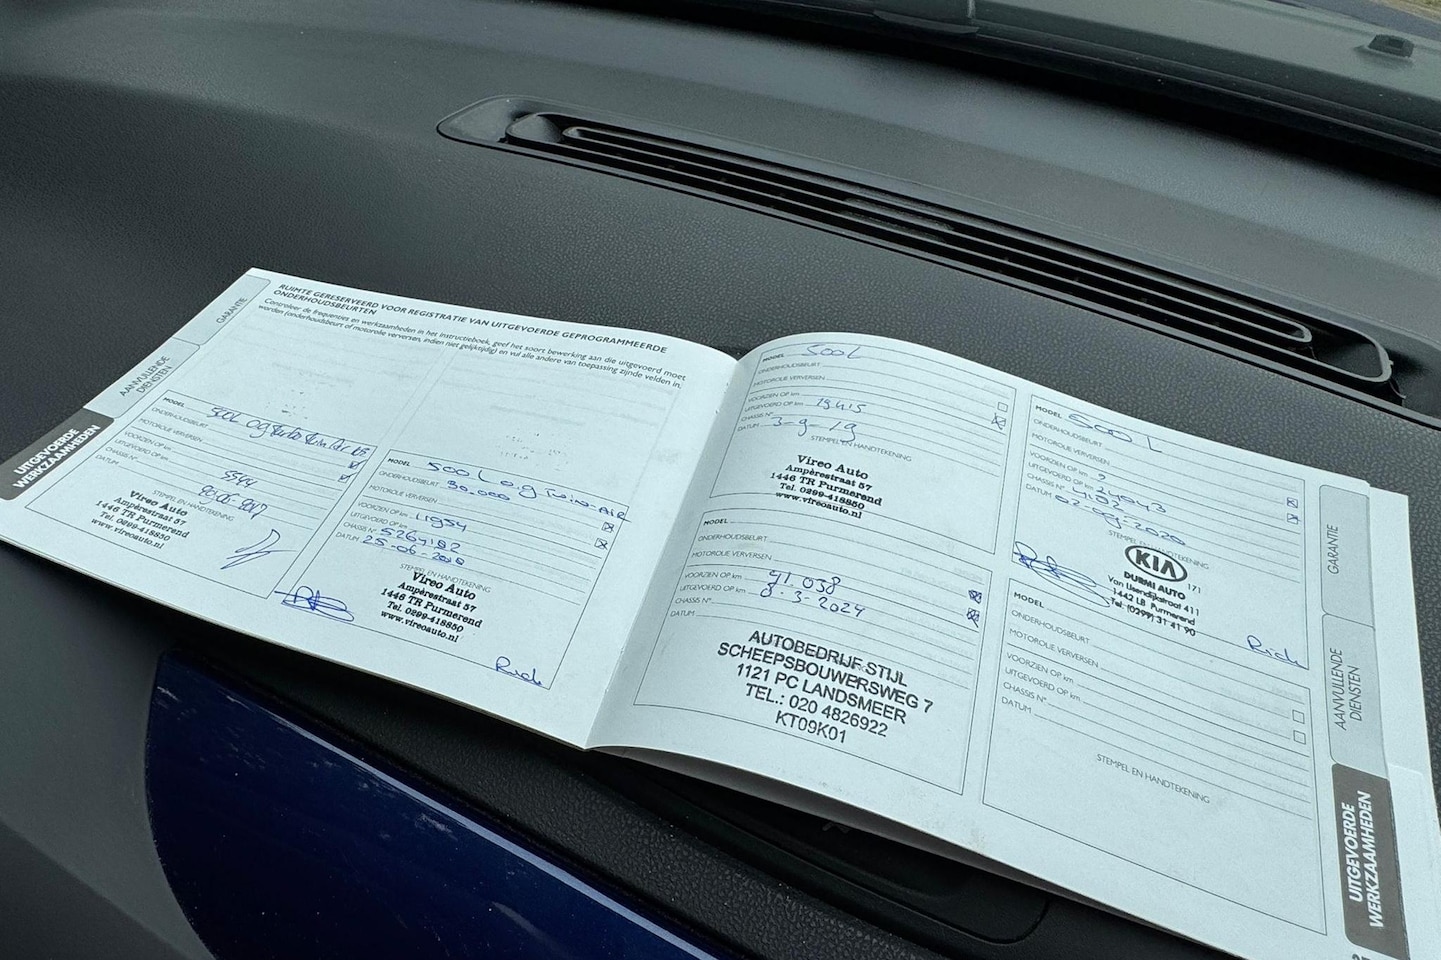 GARANTIE
AANVULLENDE
DIENSTEN
UITGEVOERDE
WERKZAAMHEDEN
RUIMTE GERESERVEERD VOOR REGISTRATIE VAN UITGEVOERDE GEPROGRAMMEERDE
ONDERHOUDSBEURTEN
Controleer de frequenties en werkzaamheden in het instructieboek, geef het soort bewerking aan die uitgevoerd moet
worden (onderhoudsbeurt of motorolie verversen, indien niet gelijktijdig) en vul alle andere van toepassing zijnde velden in.
MODEL 500L
ONDERHOUDSBEURT
MOTOROLIE VERVERSEN
VOORZIEN OP km
UITGEVOERD OP km 5544
CHASSIS N°
DATUM
STEMPEL EN HANDTEKENING
Vireo Auto
Ampèrestraat 57
1446 TR Purmerend
Tel. 0299-418850
www.vireoauto.nl
MODEL 500L
ONDERHOUDSBEURT 30.000
MOTOROLIE VERVERSEN
VOORZIEN OP km
UITGEVOERD OP km 11954
CHASSIS N° 5264182
DATUM 25-06-2018
STEMPEL EN HANDTEKENING
Vireo Auto
Ampèrestraat 57
1446 TR Purmerend
Tel. 0299-418850
www.vireoauto.nl
Rick
MODEL 500L
ONDERHOUDSBEURT
MOTOROLIE VERVERSEN
VOORZIEN OP km
UITGEVOERD OP km 19415
CHASSIS N°
DATUM 3-9-19
STEMPEL EN HANDTEKENING
Vireo Auto
Ampèrestraat 57
1446 TR Purmerend
Tel. 0299-418850
www.vireoauto.nl
MODEL
ONDERHOUDSBEURT
MOTOROLIE VERVERSEN
VOORZIEN OP km
UITGEVOERD OP km 41.038
CHASSIS N° 8-3-2024
DATUM
AUTOBEDRIJF STIJL
SCHEEPSBOUWERSWEG 7
1121 PC LANDSMEER
TEL.: 020 4826922
KT09K01
MODEL 500L
ONDERHOUDSBEURT
MOTOROLIE VERVERSEN
VOORZIEN OP km
UITGEVOERD OP km 24943
CHASSIS N° 4182
DATUM 02-09-2020
STEMPEL EN HANDTEKENING
KIA
DURMI AUTO
171
1442 LB Purmerend
Tel. (0299) 31 41 90
Rick
MODEL
ONDERHOUDSBEURT
MOTOROLIE VERVERSEN
VOORZIEN OP km
UITGEVOERD OP km
CHASSIS N°
DATUM
STEMPEL EN HANDTEKENING
GARANTIE
AANVULLENDE
DIENSTEN
UITGEVOERDE
WERKZAAMHEDEN